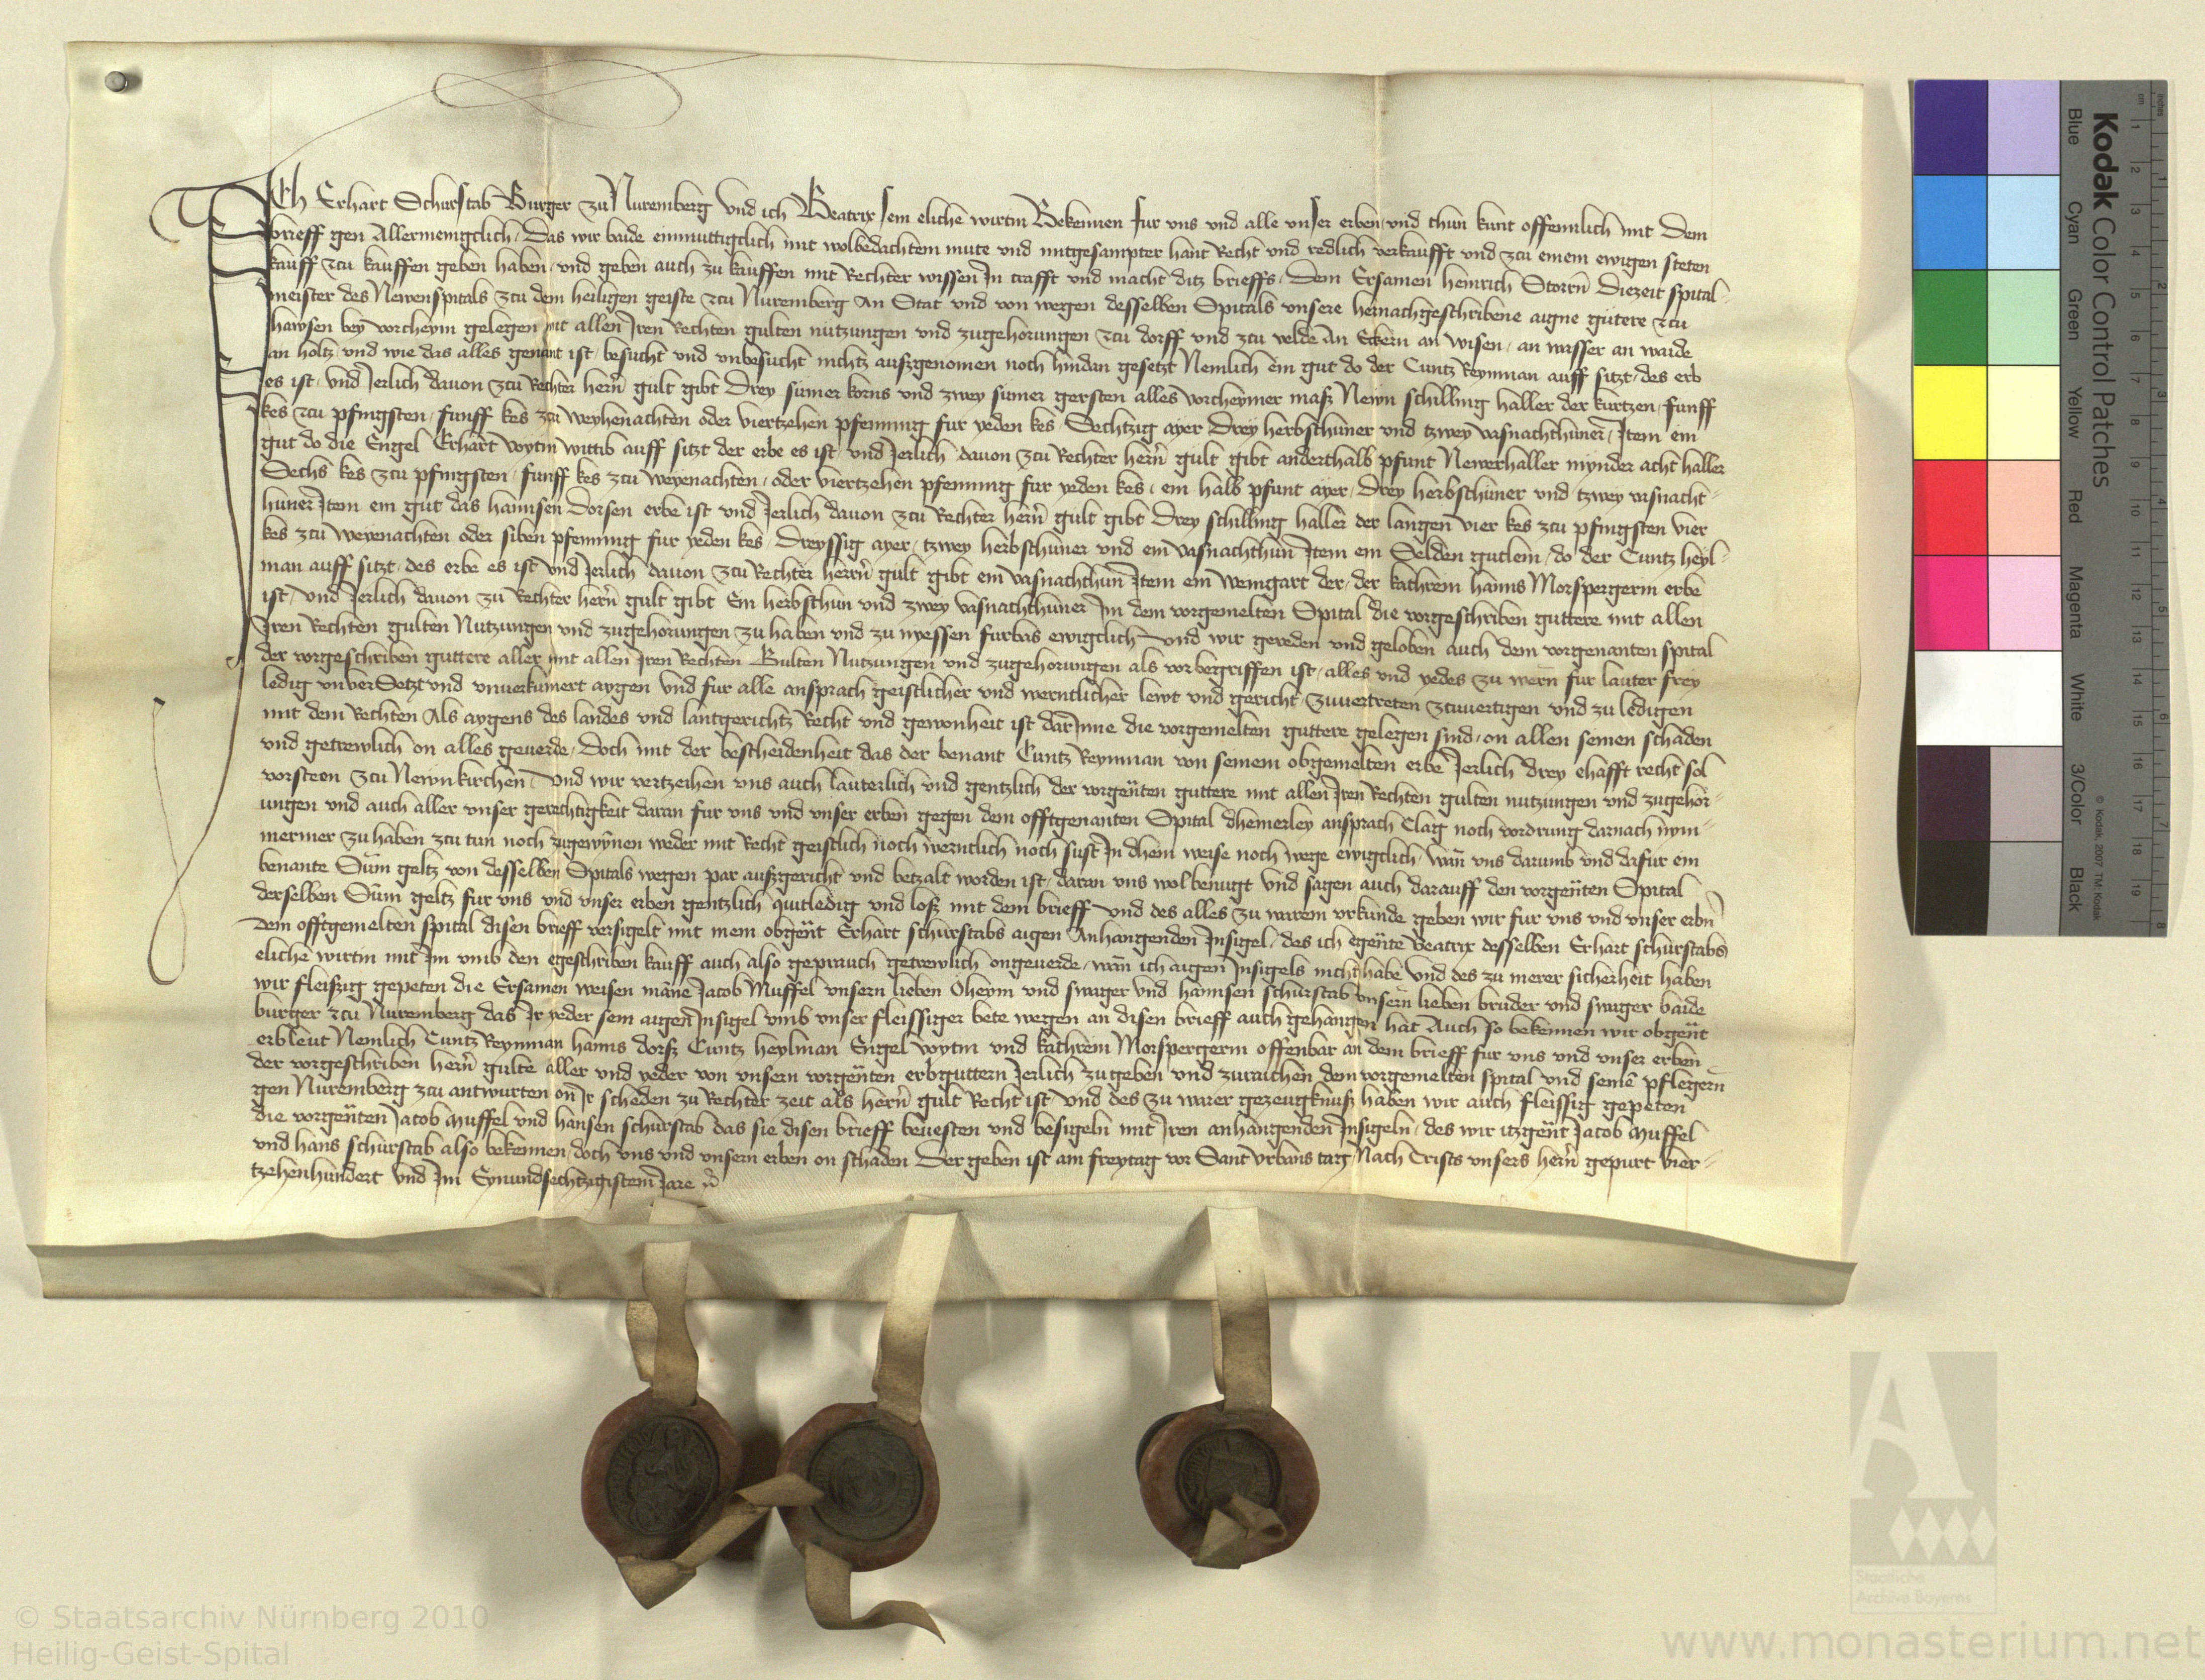 Ich Erhart Schurstab Burger zu Nuremberg vnd ich Beatrix sein eliche wirtin Bekennen fur vns vnd alle vnser erben vnd thun kunt offennlich mit dem
brieff gen Allermeniglich das wir baide einmuttigclich mit wolbedachtem mute vnd mitgesampter hant Recht vnd redlich verkaufft vnd zcu einem ewigen steten
kauff zcu kauffen geben haben vnd geben auch zu kauffen mit Rechter wissen In crafft vnd macht ditz brieffs dem Ersamen heinrich Storrn diezeit spital-
meister des Newenspitals zcu dem heiligen geiste zcu Nuremberg an Stat vnd von wegen desselben Spitals vnsere hernachgeschribene aigne gutere zcu
hawsen bey vorcheym gelegen mit allen Iren Rechten gulten nutzungen vnd zugehorungen zcu dorff vnd zcu velde an Eckern an wisen an wasser an waide
an holtz vnd wie das alles genant ist besucht vnd vnbesucht nichtz auszgenomen noch hindan gesetzt Nemlich ein gut do der Cuntz Reynman auff sitzt des erb
es ist vnd Jerlich dauon zcu Rechter herrn gult gibt drey sumer korns vnd zwey sumer gersten alles vorcheymer masz Newn schilling haller der kurtzen funff
kes zcu pfingsten funff kes zcu weyhenachten oder viertzehen pfenning fur yeden kes Sechtzig ayer drey herbsthuner vnd tzwey vasnachthuner Item ein
gut do die Engel Erhart voytin wittib auff sitzt der erbe es ist vnd Jerlich dauon zcu Rechter herrn gult gibt anderthalb pfunt Newerhaller mynder acht haller
Sechs kes zcu pfingsten funff kes zcu weyenachten oder viertzehen pfenning fur yeden kes ein halb pfunt ayer drey herbsthuner vnd tzwey vasnacht-
huner Item ein gut das hannsen dorsen erbe ist vnd Jerlich dauon zcu Rechter herrn gult gibt drey schilling haller der langen vier kes zcu pfingsten vier
kes zcu weyenachten oder siben pfenning fur yeden kes dreyssig ayer tzwey herbsthuner vnd ein vasnachthun Item ein Selden gutlein do der Cuntz heyl-
man auff sitzt des erbe es ist vnd Jerlich dauon zcu Rechter herrn gult gibt ein vasnachthun Item ein weingart der der kathrein hanns Morspergerin erbe
ist vnd Jerlich dauon zu Rechter herrn gult gibt Ein herbsthun vnd zwey vasnachthuner Im dem vorgemelten Spital die vorgeschriben guttere mit allen
Iren Rechten gulten Nutzungen vnd zugehorungen zu haben vnd zu nyessen furbas ewigclich Vnd wir gereden vnd geloben auch dem vorgenanten spital
der vorgeschriben guttere aller mit allen Iren Rechten Gulten Nutzungen vnd zugehorungen als vorbegriffen ist alles vnd yedes zu wern fur lauter frey
ledig vnuerSetzt vnd vnuerkumert aygen vnd fur alle ansprach geistlicher vnd werntlicher lewt vnd gericht zuuertreten zcuuertigen vnd zu ledigen
mit dem Rechten Als aygens des landes vnd lantgerichtz Recht vnd gewonheit ist darInne die vorgemelten guttere gelegen sind on allen seinen schaden
vnd getrewlich on alles geuerde Doch mit der bescheidenheit das der benant Cuntz Reynman von seinem obgemelten erbe Jerlich drey ehafft recht sol
vorsteen zcu Newnkirchen Vnd wir vertzeihen vns auch lauterlich vnd gentzlich der vorgenten guttere mit allen Iren Rechten gulten nutzungen vnd zugehor-
ungen vnd auch aller vnser gerechtigkeit daran fur vns vnd vnser erben gegen dem offtgenanten Spital dheinerley ansprach Clag noch vordrung darnach nym-
mermer zu haben zcu tun noch zugewynen weder mit Recht geistlich noch werntlich noch sust In dhein weise noch wege ewigclich wann vns darumb vnd dafur ein
benante Sum geltz von desselben Spitals wegen par auszgericht vnd betzalt worden ist daran vns wol benugt Vnd sagen auch darauff den vorgenten Spital
derselben Sum geltz fur vns vnd vnser erben gentzlich quitledig vnd losz mit dem brieff Vnd des alles zu warem vrkunde geben wir fur vns vnd vnser erbn
dem offtgemelten spital disen brieff versigelt mit mein obgent Erhart schurstabs aigen Anhangenden Insigel des ich egente Beatrix desselben Erhart schurstabs
eliche wirtin mit Im vmb den egeschriben kauff auch also geprauch getrewlich ongeuerde wann ich aigen Insigels nicht habe Vnd des zu merer sicherheit haben
wir fleiszig gepeten die Ersamen weisen mane Jacob Muffel vnsern lieben Oheym vnd swager vnd hannsen schurstab vnsern lieben bruder vnd swager baide
burger zcu Nuremberg das Ir yeder sein aigen Insigel vmb vnser fleissiger bete wegen an disen brieff auch gehangen hat Auch so bekennen wir obgent
erbleut Nemlich Cuntz Reynman hanns dorsz Cuntz heylman Engel voytin vnd kathrein Morspergerin offenbar an dem brieff fur vns vnd vnser erben
der vorgeschriben herrn gulte aller vnd yeder von vnsern vorgenten erbguttern Jerlich zugeben vnd zuraichen dem vorgemelten spital vnd seinen pflegern
gen Nuremberg zcu antwurten on Ir scheden zu Rechter zeit als herrn gult Recht ist Vnd des zu warer gezeugknusz haben wir auch fleissig gepeten
die vorgenten Jacob Muffel vnd hansen schurstab das sie disen brieff beuesten vnd besigeln mit Iren anhangenden Insigeln des wir itzgent Jacob Muffel
vnd hans schurstab also bekennen doch vns vnd vnsern erben on schaden Der geben ist am freytag vor Sant Vrbans tag Nach Crists vnsers herrn gepurt vier-
tzehenhundert vnd Im Eynundsechtzigistem Jare
Kodak Color Control Patches
Blue Cyan Green Yellow Red Magenta White 3/Color Black
© Kodak, 2007 TM: Kodak
cm 1 2 3 4 5 6 7 8 9 10 11 12 13 14 15 16 17 18 19
inches 1 2 3 4 5 6 7 8
Staatliche
Archive Bayerns
© Staatsarchiv Nürnberg 2010
Heilig-Geist-Spital
www.monasterium.net